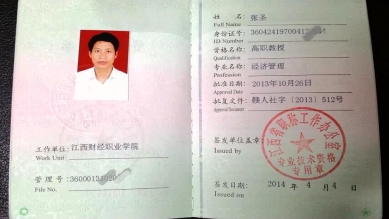 工作单位:江西财经职业学院
Work Unit
管理号:36000131
File No.
姓 名:张圣
Full Name
身份证号:36042419700412
ID Number
资格名称:高职教授
Qualification
专业名称:经济管理
Profession
批准日期:2013年10月26日
Approval Date
批复文号:赣人社字〔2013〕512号
Approval Document
签发单位盖章:
Issued by
江西省职称工作办公室
专业技术资格
专用章
签发日期:2014 年 4 月 4 日
Issued on